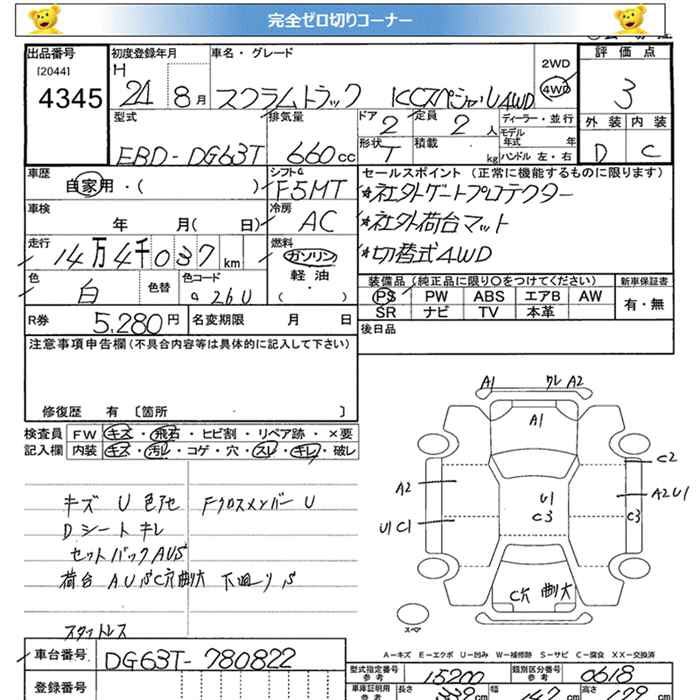 完全ゼロ切りコーナー
出品番号 初度登録年月 車名・グレード 評価点
[2044] H 2WD
4345 21 8月 スクラムトラック KCスペシャル4WD 4WD 3
型式 排気量 ドア 定員 ディーラー・並行 外装 内装
2 2人 モデル年式 年
EBD-DG63T 660cc 形状 積載 D C
T kg ハンドル 左・右
車歴 シフト セールスポイント(正常に機能するものに限ります)
自家用・( ) F5MT *社外ゲートプロテクター
車検 冷房 *社外荷台マット
年 月( 日) AC
走行 燃料 *切替式4WD
14万4千037km ガソリン
色 色替 色コード 軽油 装備品(純正品に限り○をつけてください) 新車保証書
白 26U ( ・ ) PS PW ABS エアB AW 有・無
SR ナビ TV 本革
R券 5,280円 名変期限 月 日 後日品
注意事項申告欄(不具合内容等は具体的に記入して下さい)
修復歴 有 〔箇所 〕
検査員 FW キズ・飛石・ヒビ割・リペア跡・×要
記入欄 内装 キズ・汚レ・コゲ・穴・スレ・キレ・破レ
A1 ワレ A2
A1
C2
A2 U1 A2U1
U1C1 C3 C3
C穴 曲大
スペア
キズ U 色アセ Fクロスメンバー U
Dシート キレ
セットバックAUS
荷台 AUSC穴曲大 下回りS
スタットレス
A-キズ E-エクボ U-凹み W-補修跡 S-サビ C-腐食 XX-交換済
車台番号 DG63T-780822
登録番号
型式指定番号 参考 15200 類別区分番号 参考 0618
車庫証明用 参考 長さ 339cm 幅 147cm 高さ